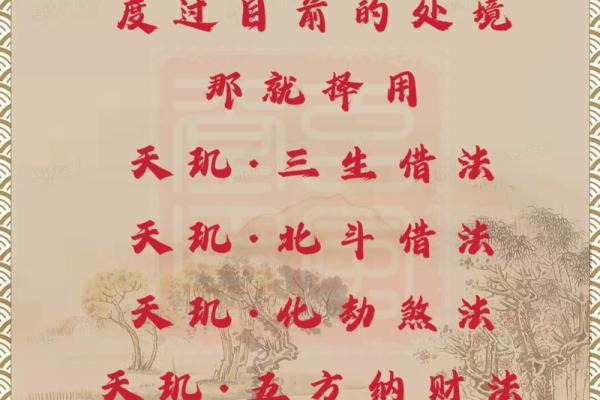 度过目前的处境
那就择用
天玑·三生借法
天玑·北斗借法
天玑·化劫煞法
天玑·五方纳财法